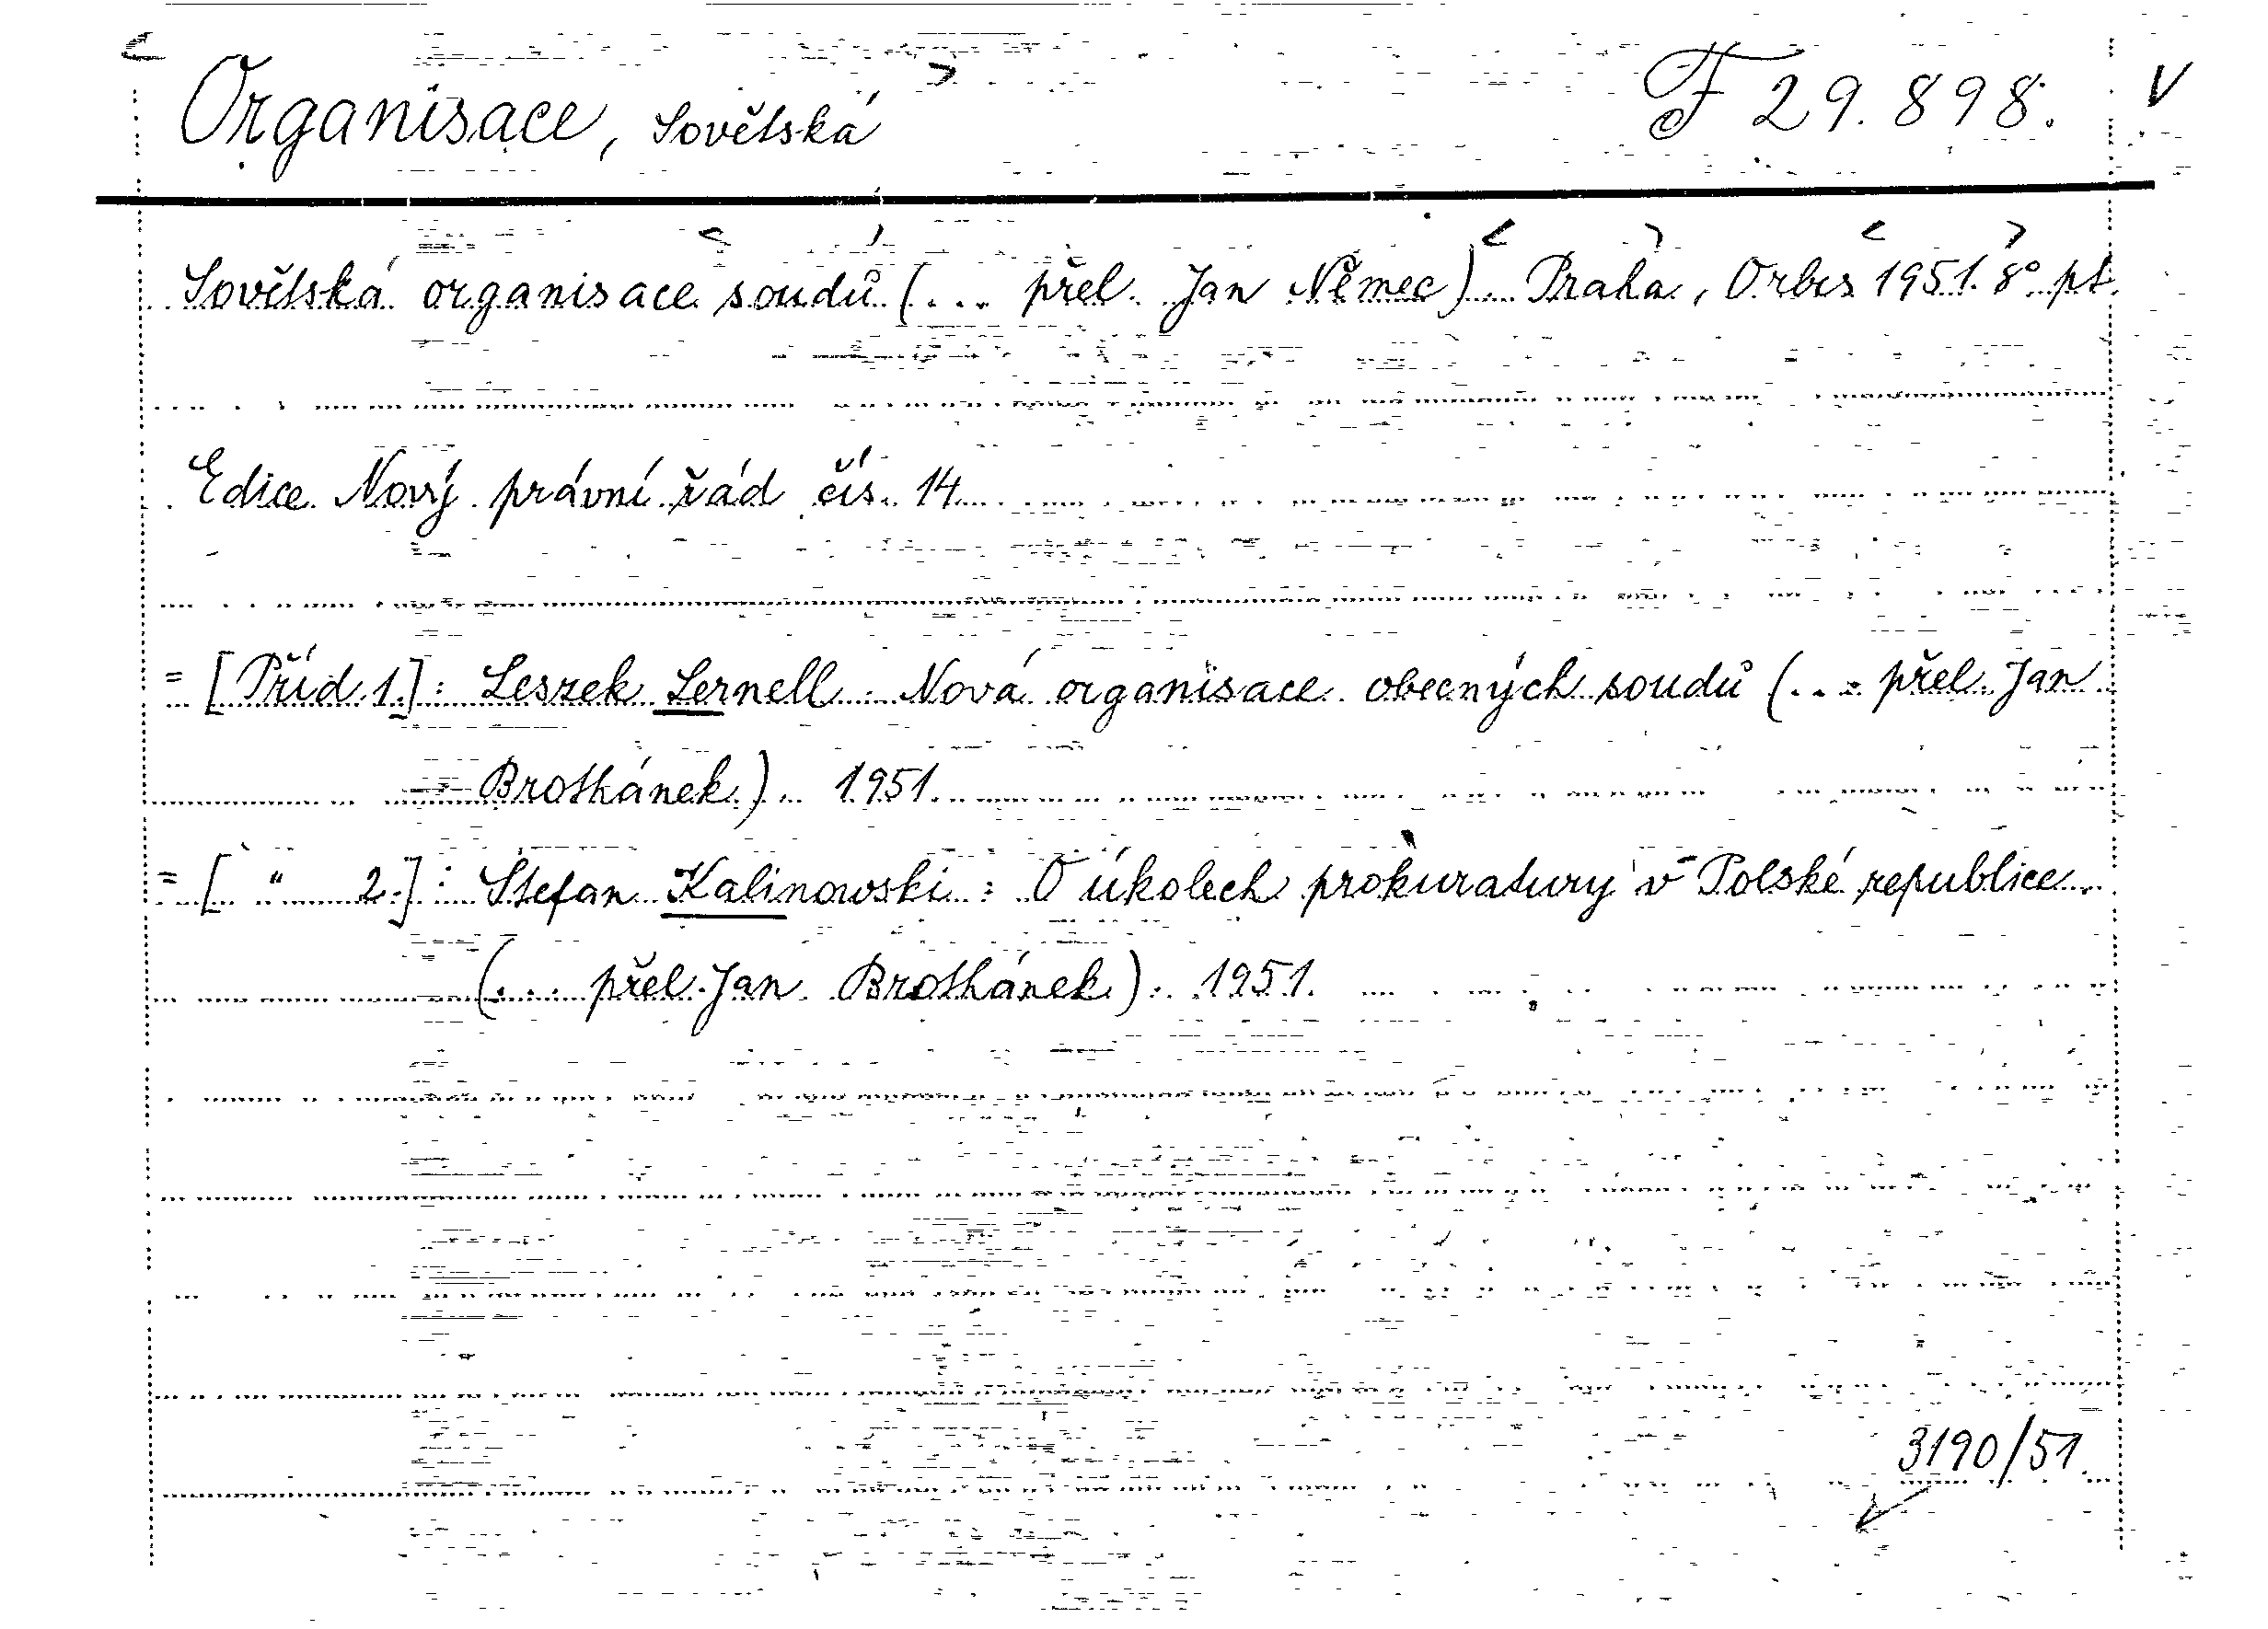 Organisace, Sovětská F 29.898. V
Sovětská organisace soudů (... přel. Jan Němec). Praha, Orbis 1951. 8° pt.
Edice Nový právní řád čís. 14
= [Příd. 1.]: Leszek Lernell: Nová organisace obecných soudů (... přel. Jan
Brothánek). 1951.
= [ " 2.]: Stefan Kalinowski: O úkolech prokuratury v Polské republice.
(... přel. Jan Brothánek). 1951.
3190/51.